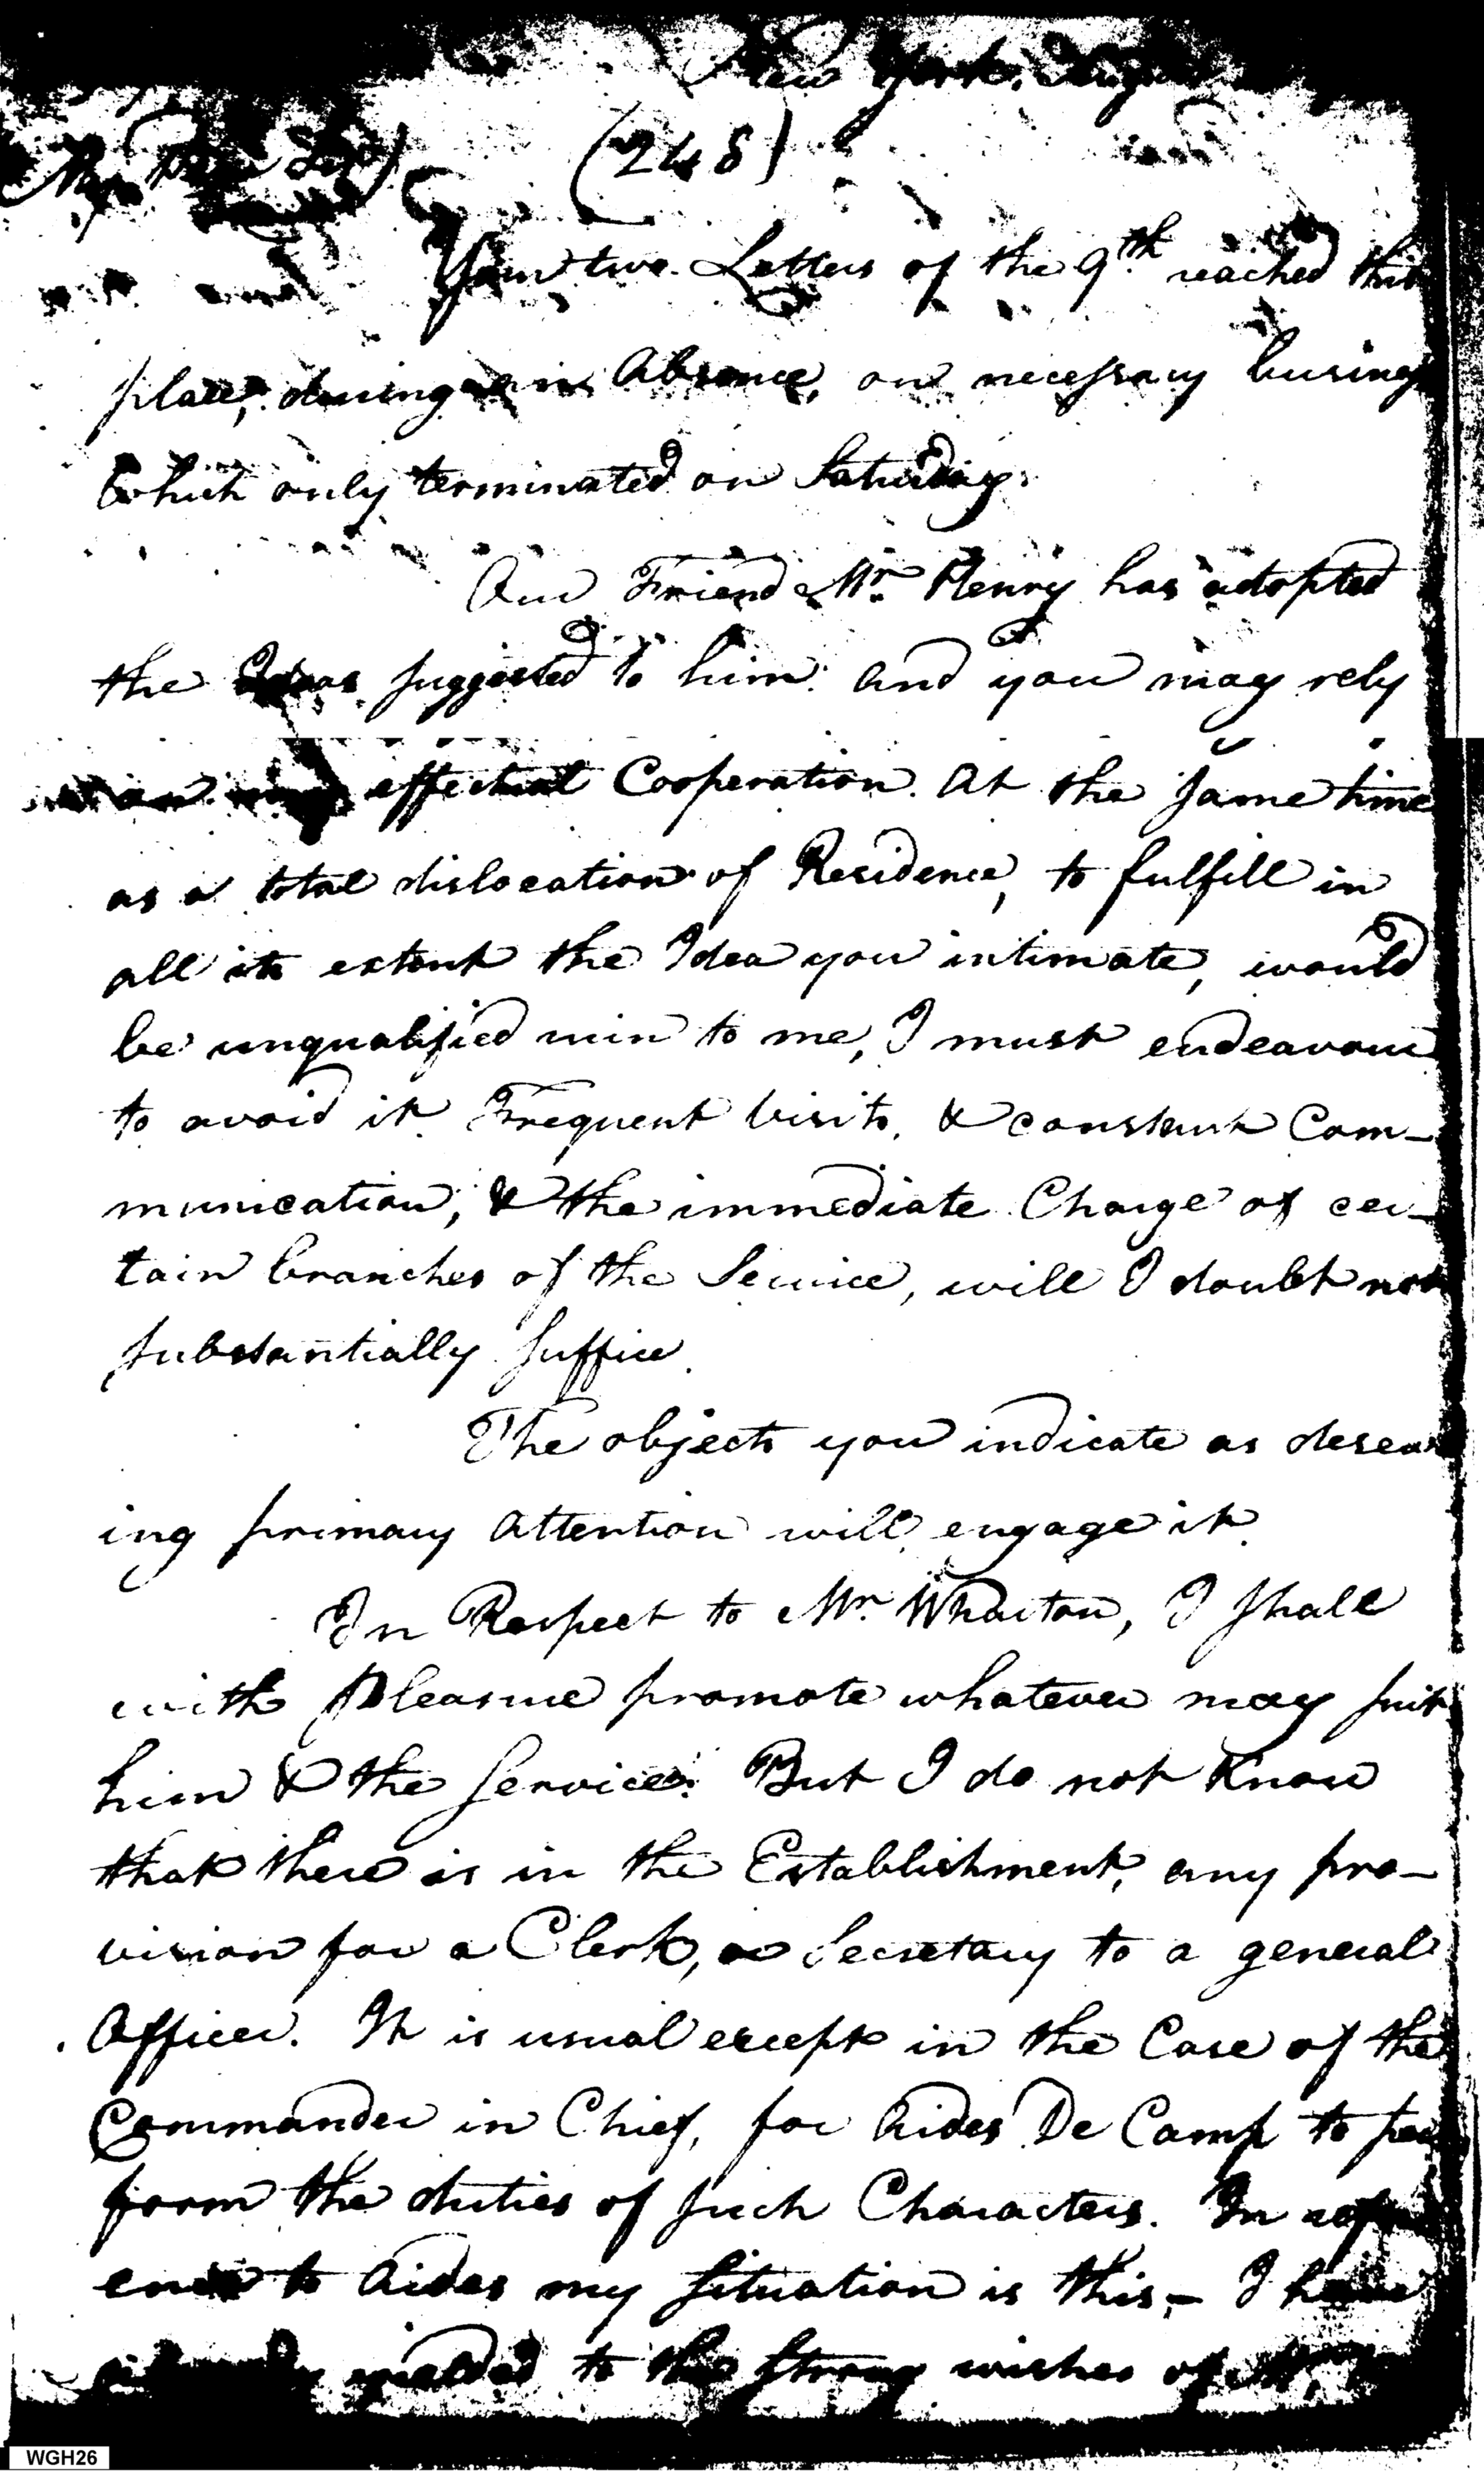 New York, Aug
My Dear Sir, (248)
Your two Letters of the 9th reached this
place, during an Absence, on necessary busines
which only terminated on Saturday.
Our Friend Mr. Henry has adopted
the Ideas suggested to him. and you may rely
on my effectual Cooperation. At the same time
as a total dislocation of Residence, to fulfill in
all its extent the Idea you intimate, would
be unqualified ruin to me, I must endeavour
to avoid it. Frequent Visits, & constant Com-
munication, & the immediate Charge of cer-
tain branches of the Service, will I doubt not
substantially suffice.
The objects you indicate as deserv
ing primary Attention will engage it.
In Respect to Mr. Wharton, I shall
with pleasure promote whatever may suit
him & the Service. But I do not Know
that there is in the Establishment, any pro-
vision for a Clerk, or Secretary to a general
Officer. It is usual except in the Case of the
Commander in Chief, for Aides De Camp to per
form the duties of such Characters. In refer
ence to Aides my situation is this,- I have
yielded to the strong wishes of Mr.
WGH26